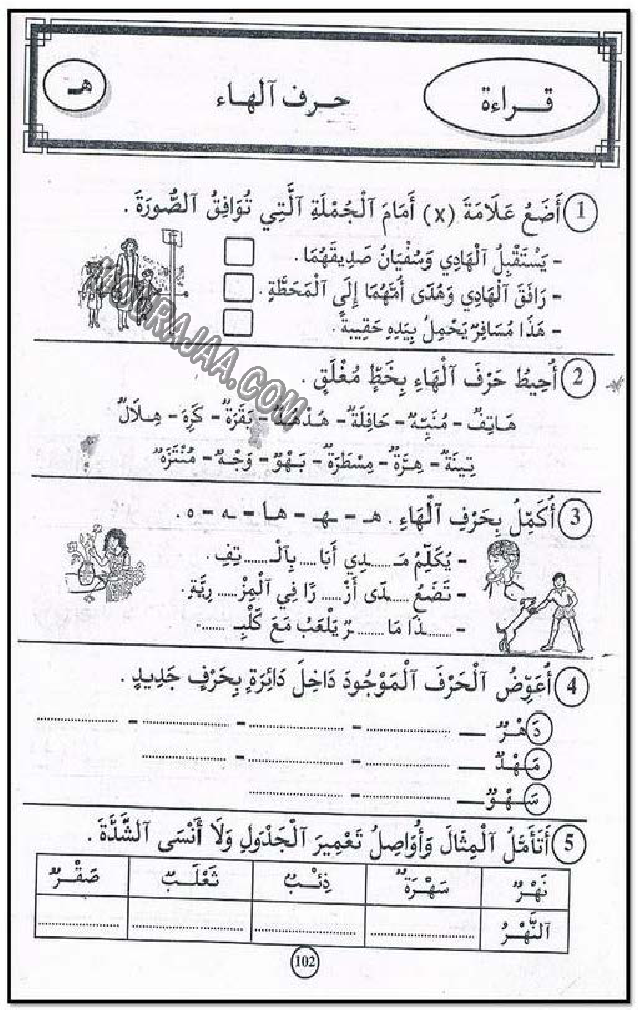 قـــراءة
حرف ٱلهاء
هـ
1 أَضَعُ عَلَامَةَ (x) أَمَامَ ٱلْجُمْلَةِ ٱلَّتِي تُوَافِقُ ٱلصُّورَةَ .
- يَسْتَقْبِلُ ٱلْهَادِي وَسُفْيَانُ صَدِيقَهُمَا .
- رَافَقَ ٱلْهَادِي وَهُدَى أُمَّهُمَا إِلَى ٱلْمَحَطَّةِ .
- هَذَا مُسَافِرٌ يَحْمِلُ بِيَدِهِ حَقِيبَةً .
MOURAJAA.COM
2 أُحِيطُ حَرْفَ ٱلْهَاءِ بِخَطٍّ مُغْلَقٍ .
هَاتِفٌ - مُنَبِّهٌ - حَافِلَةٌ - هَدْهَدَ - بَقَرَةٌ - كَرِهَ - هِلَالٌ
تِينَةٌ - هِرَّةٌ - مِسْطَرَةٌ - بَهْوٌ - وَجْهٌ - مُنْتَزَهٌ
3 أُكَمِّلُ بِحَرْفِ ٱلْهَاءِ . هـ - ـهـ - هـا - ـه - ه .
- يُكَلِّمُ مَـ......ـدِي أَبَا..... بِٱلْـ......ـتِفِ .
- تَضَعُ .....ـدَى أَزْ.....رًا فِي ٱلْمِزْ.....رِيَّةِ .
- .....ـذَا مَا.....ـرٌ يَلْعَبُ مَعَ كَلْبِـ......
4 أُعَوِّضُ ٱلْحَرْفَ ٱلْمَوْجُودَ دَاخِلَ دَائِرَةٍ بِحَرْفٍ جَدِيدٍ .
دَهْرٌ — ............ - ............ - ............ - ............
مَهْدٌ — ............ - ............ - ............
سَهْوٌ — ............ - ............
5 أَتَأَمَّلُ ٱلْمِثَالَ وَأُوَاصِلُ تَعْمِيرَ ٱلْجَدْوَلِ وَلَا أَنْسَى ٱلشَّدَّةَ .
نَهْرٌ سَهْرَةٌ ذِئْبٌ ثَعْلَبٌ صَقْرٌ
ٱلنَّهْرُ ............ ............ ............ ............
102